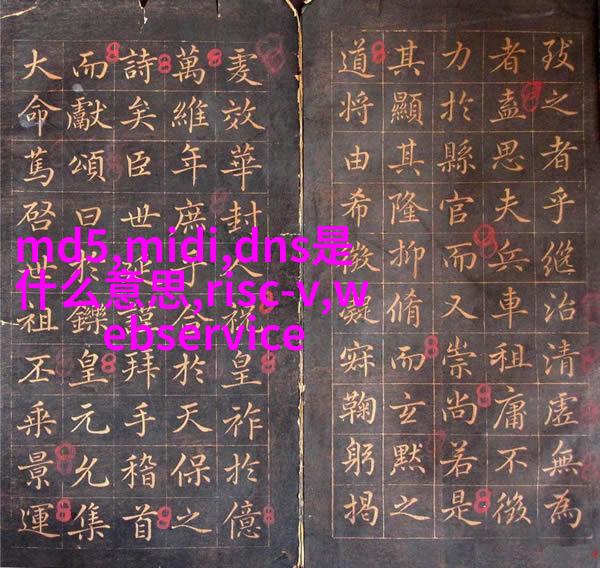 致之者乎継治清虛無為
者盍思夫兵車租庸不徵
力於縣官而又崇尚若是
其顯其隆抑脩而玄默之
道將由希凝鞠躬揭
虔效華封人祝皇祚於億
萬維年庶於天保之
詩矣臣世延拜手稽首
而獻頌曰於鑠皇元允集
大命篤啓世祖丕乘景運
md5,midi,dns是
什么意思,risc-v,w
ebservice